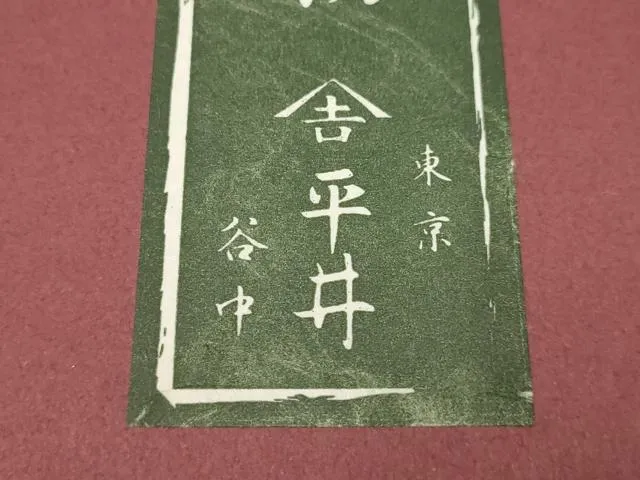 東京
吉平井
谷中